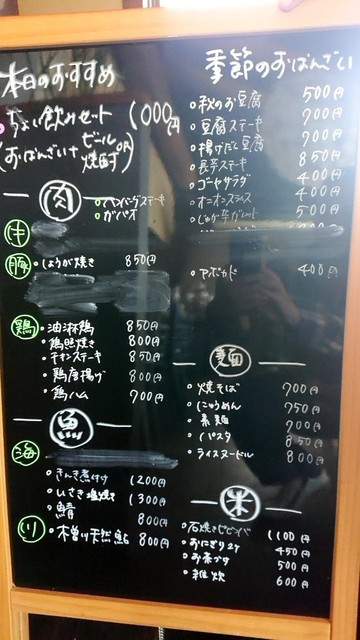 本日のおすすめ
ちょい飲みセット 1000円
(おばんざい+ビールor焼酎)
肉
ハンバーグステーキ
ガパオ
牛
豚 しょうが焼き 850円
鶏 油淋鶏 850円
鶏照焼き 800円
チキンステーキ 850円
鶏唐揚げ 800円
鶏ハム 700円
魚
海
きんき煮付け 1200円
いさき塩焼き 1300円
鯖 800円
川 木曽川天然鮎 800円
季節のおばんざい
秋のお豆腐 500円
豆腐ステーキ 700円
揚げだし豆腐 700円
長芋ステーキ 850円
ゴーヤサラダ 400円
オニオンスライス 400円
じゃが芋ガレット 500円
アボカド 400円
麺
焼そば 700円
にゅうめん 750円
素麺 700円
パスタ 850円
ライスヌードル 800円
米
石焼きビビンバ 1100円
おにぎり2ケ 450円
お茶づけ 500円
雑炊 600円